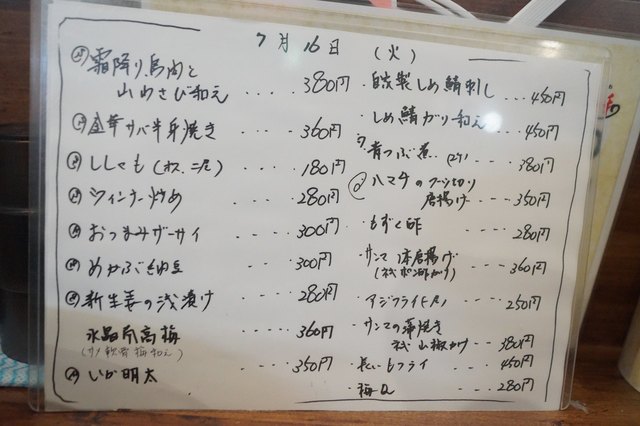 7月16日 (火)
霜降り鳥肉と
山わさび和え ・・・・ 380円
金華サバ半身焼き ・・・・ 360円
ししゃも(オス、二尾) ・・・・ 180円
ウィンナー炒め ・・・・ 280円
おつまみザーサイ ・・・・ 300円
めかぶ納豆 ・・・・ 300円
新生姜の浅漬け ・・・・ 280円
水晶 梅 ・・・・ 360円
いか明太 ・・・・ 350円
自家製しめ鯖刺し ・・・ 450円
しめ鯖ガリ和え ・・・ 450円
青つぶ煮 ・・・ 380円
ハマチのブツ切り
唐揚げ ・・・ 350円
もずく酢 ・・・・ 280円
サンマ一本唐揚げ ・・・・ 360円
アジフライ ・・・・ 250円
サンマの蒲焼き
山椒かけ ・・・・ 380円
長いもフライ ・・・・ 450円
梅Q ・・・・ 280円